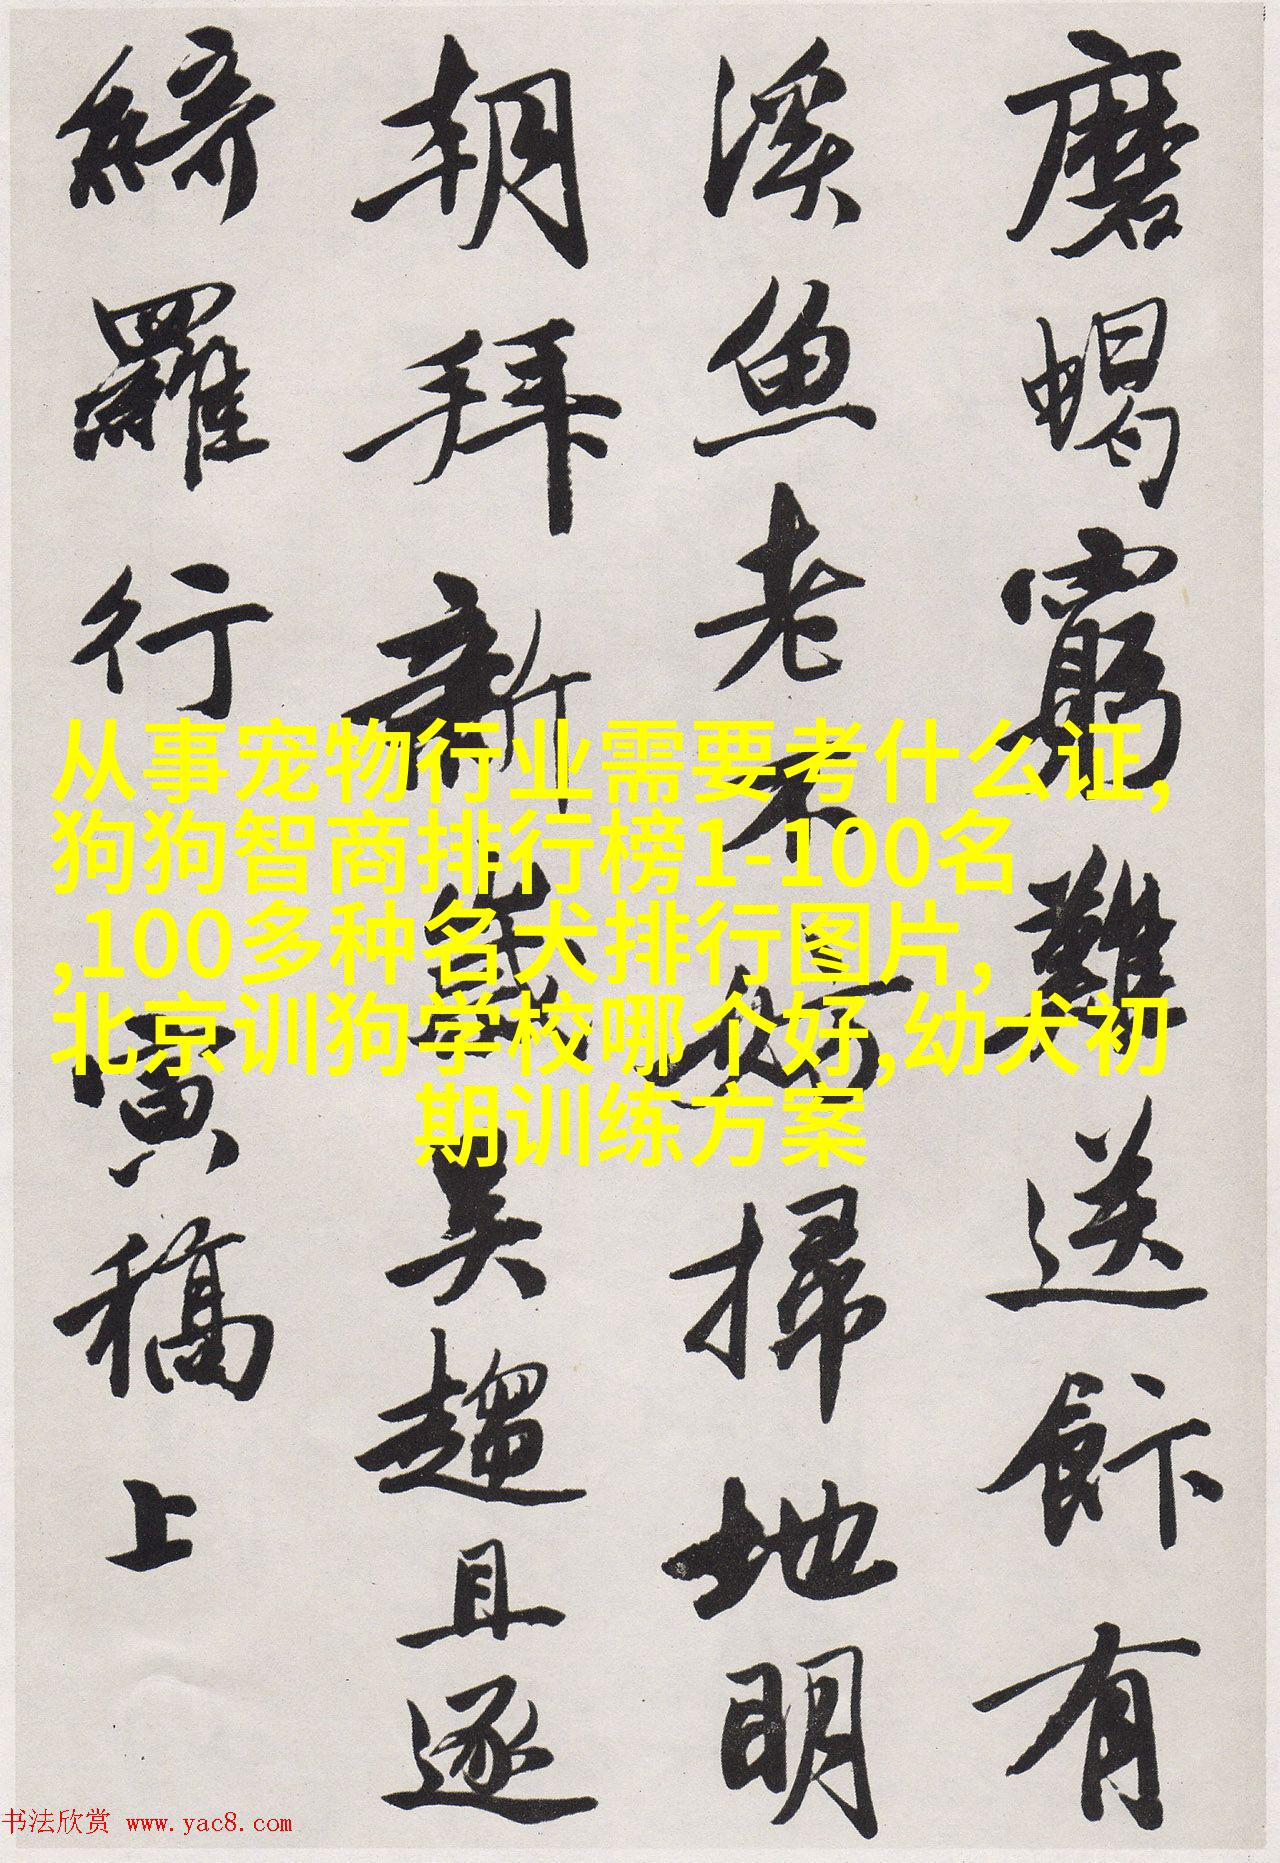 磨蝎窮難送飰有
溪魚老不婦掃地明
朝拜新歲吳趨且逐
綺羅行 寅稿上
从事宠物行业需要考什么证,
狗狗智商排行榜1-100名
,100多种名犬排行图片,
北京训狗学校哪个好,幼犬初
期训练方案
书法欣赏 www.yac8.com